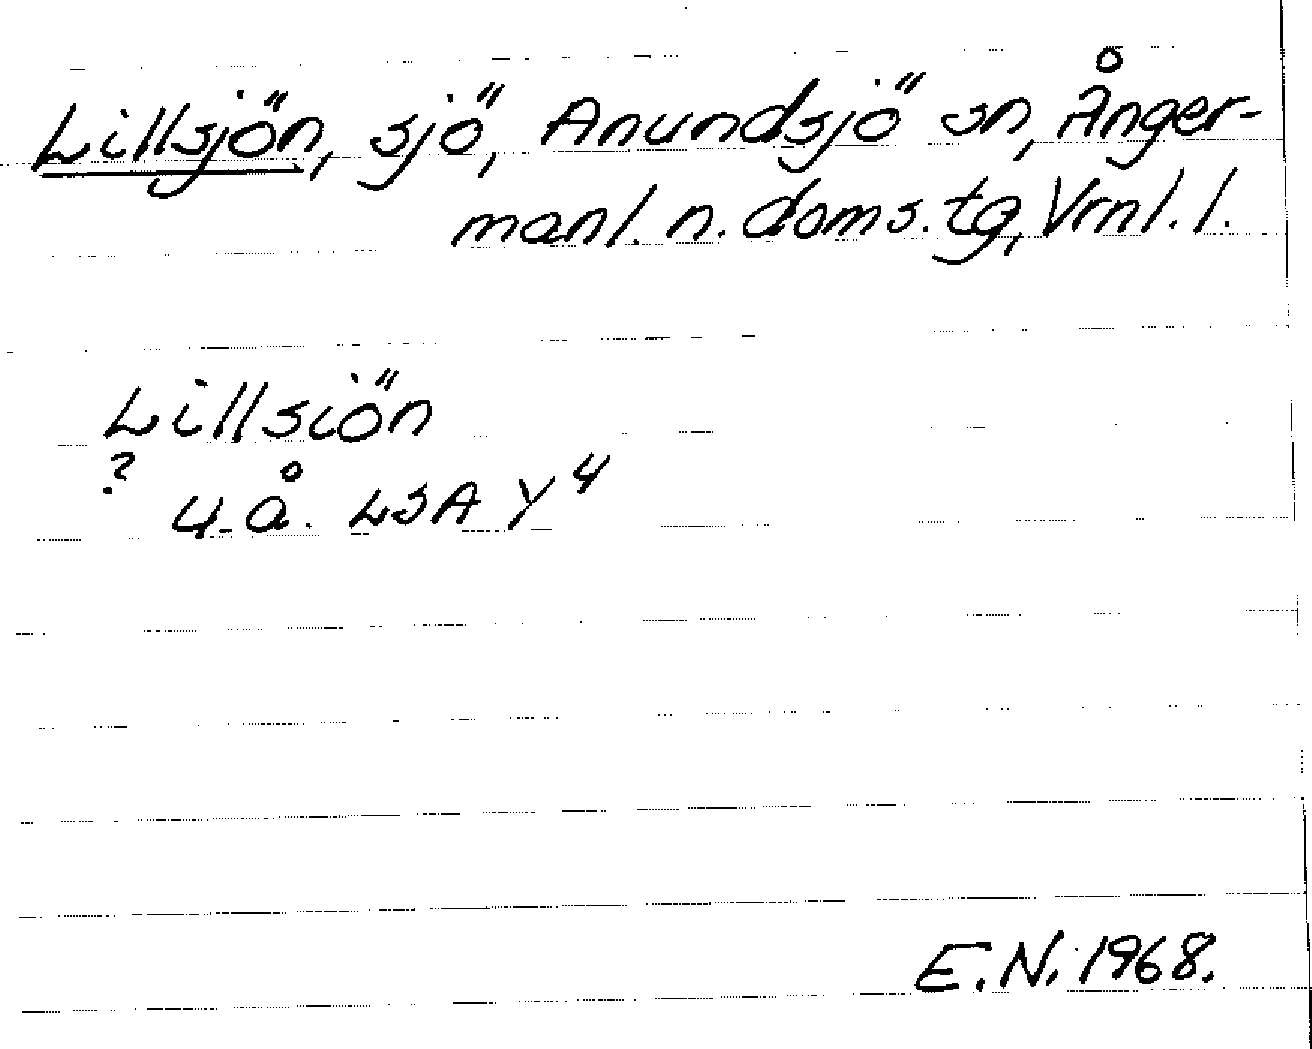 Lillsjön, sjö, Anundsjö sn, Ånger-
manl. n. doms. tg, Vrnl. l.
Lillsiön
? u.å. LSA Y 4
E.N. 1968.